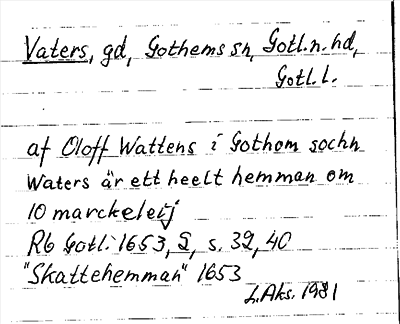 Vaters, gd, Gothems sn, Gotl.n.hd,
Gotl.l.
af Oloff Wattens i Gothom sochn
Waters är ett heelt hemman om
10 marckeleij
Rb Gotl. 1653, 2, s. 39, 40
"Skattehemman" 1653
L.Aks. 1981